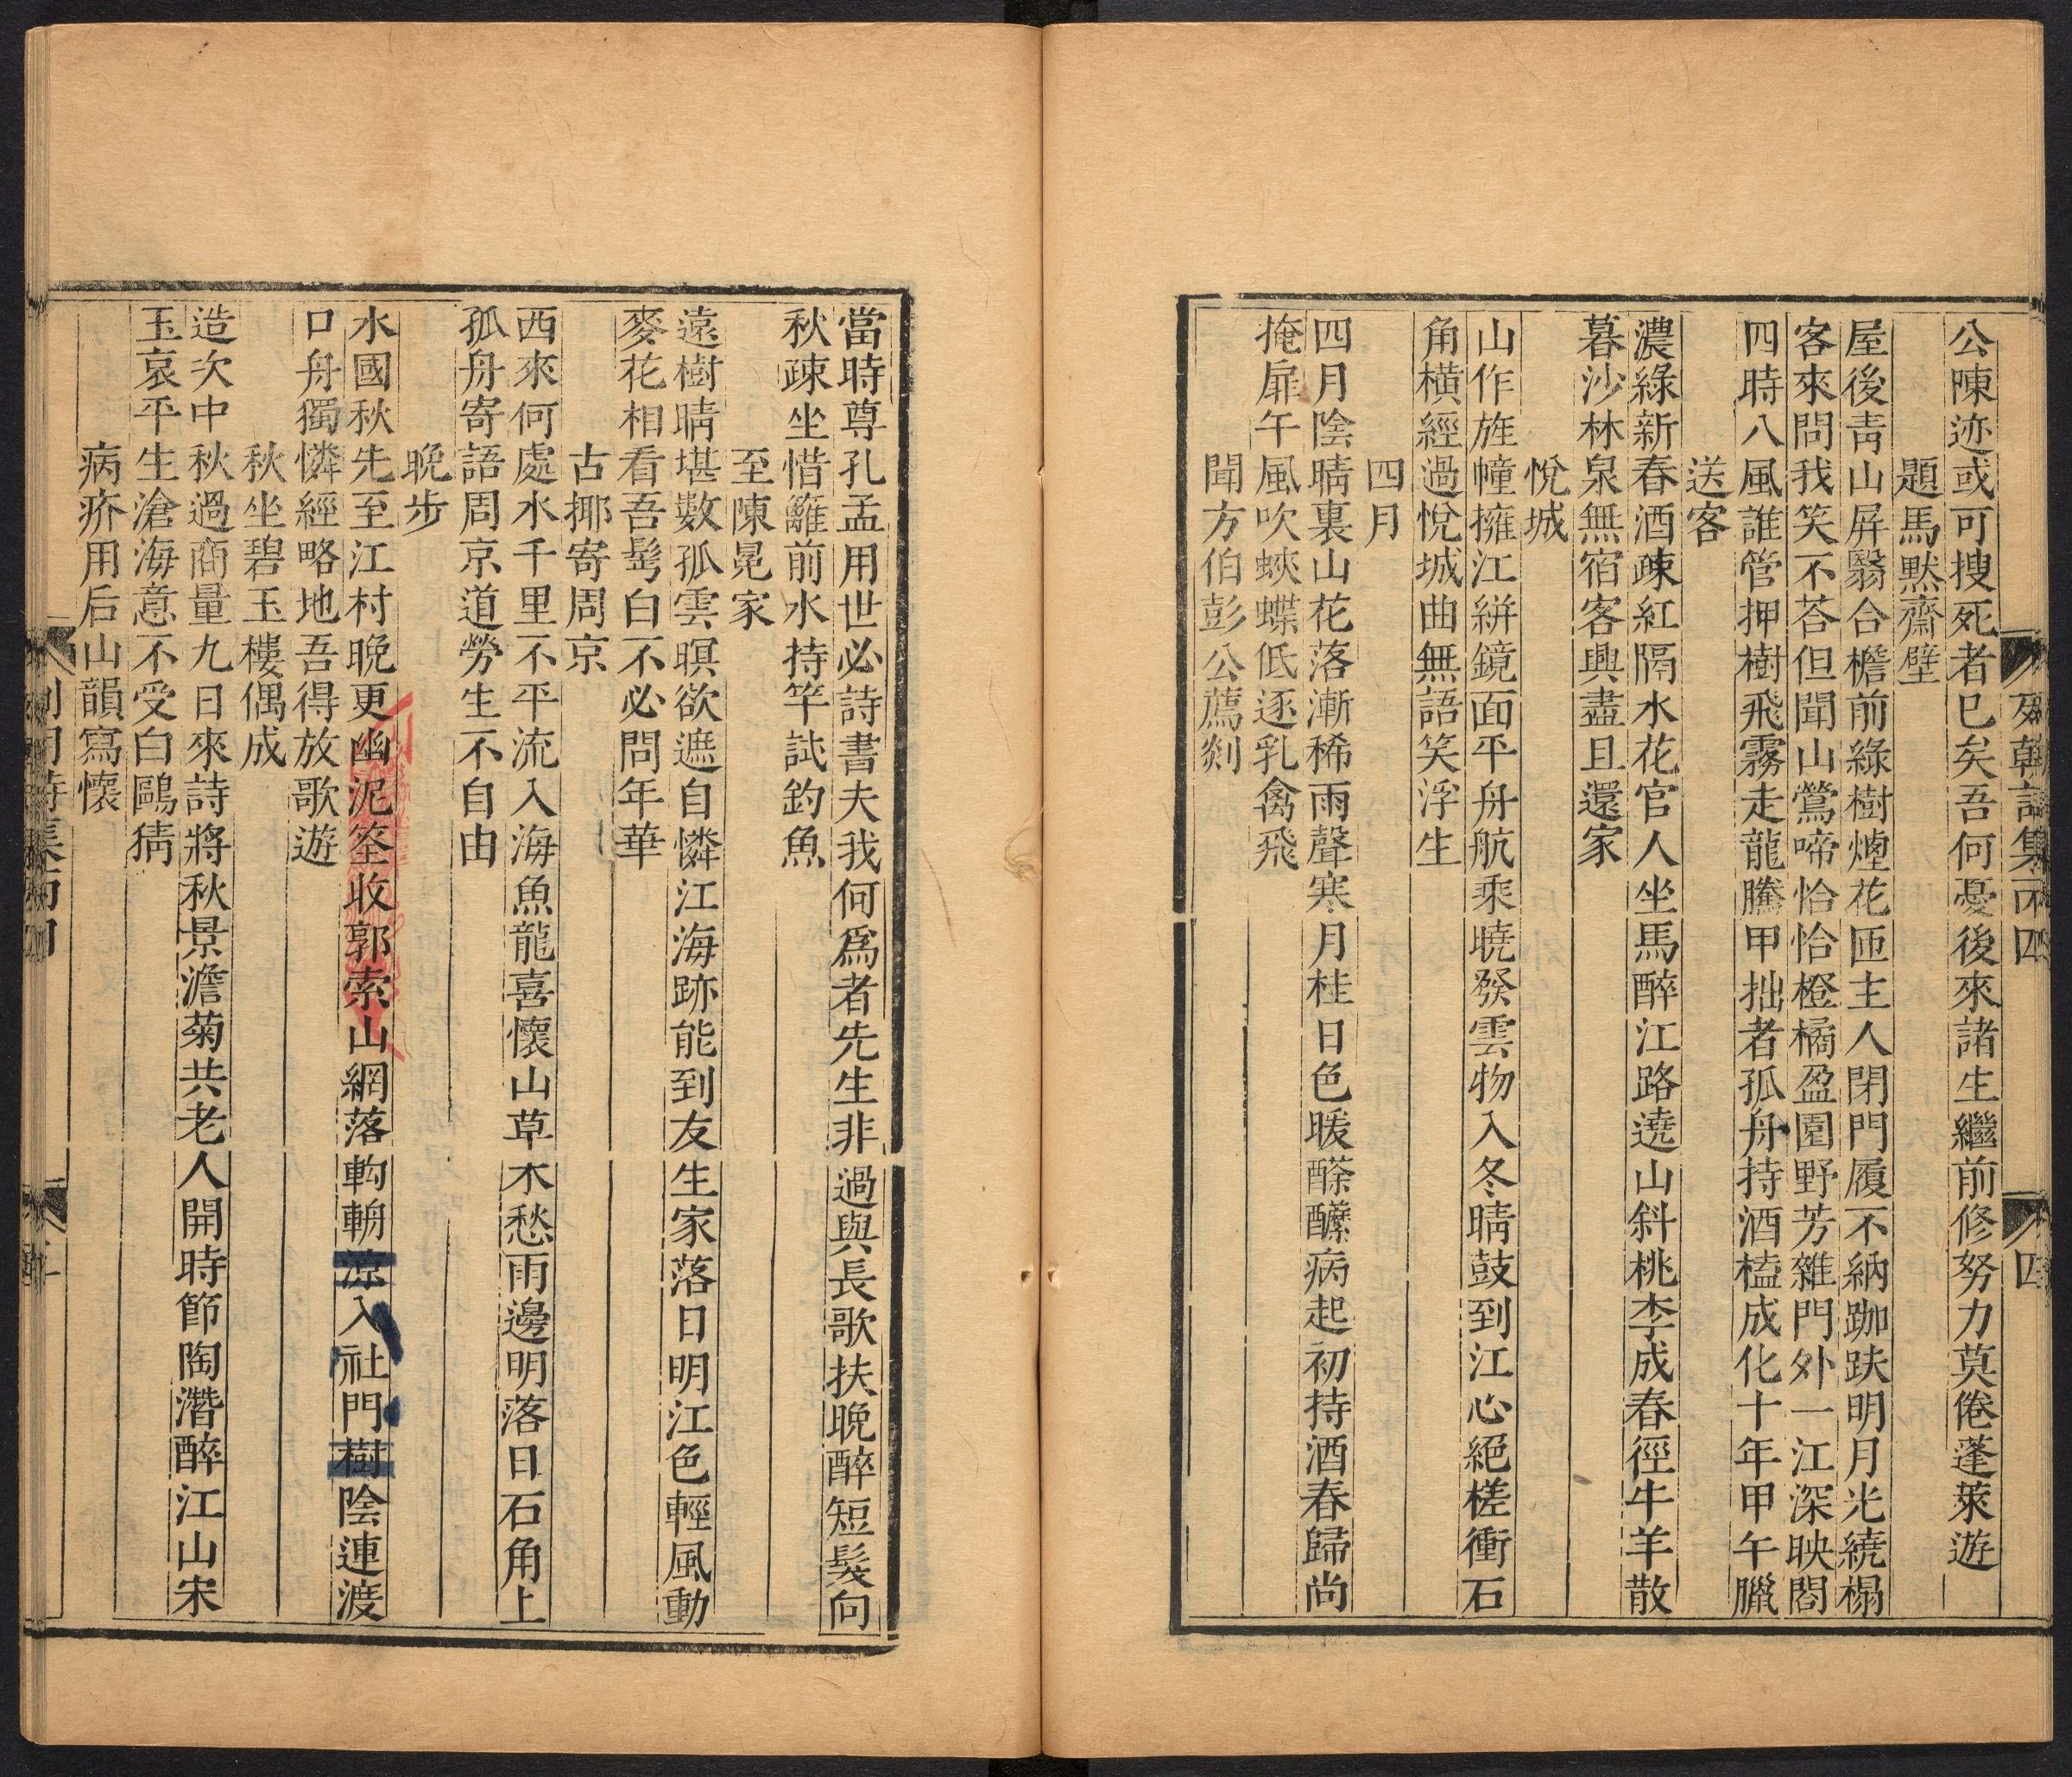 公陳迹或可搜死者已矣吾何憂後來諸生繼前修努力莫倦蓬萊遊
題馬默齋壁
屋後青山屏翳合檐前綠樹煙花匝主人閉門履不納跏趺明月光繞榻
客來問我笑不荅但聞山鶯啼恰恰橙橘盈園野芳雜門外一江深映閤
四時八風誰管押樹飛霧走龍騰甲拙者孤舟持酒榼成化十年甲午臘
送客
濃綠新春酒疎紅隔水花官人坐馬醉江路遶山斜桃李成春徑牛羊散
暮沙林泉無宿客興盡且還家
悅城
山作旌幢擁江絣鏡面平舟航乘曉發雲物入冬晴鼓到江心絕槎衝石
角橫經過悅城曲無語笑浮生
四月
四月陰晴裏山花落漸稀雨聲寒月桂日色暖醾病起初持酒春歸尚
掩扉午風吹蛺蝶低逐乳禽飛
聞方伯彭公薦剡
詩集 四
四
當時尊孔孟用世必詩書夫我何爲者先生非過與長歌扶晚醉短髮向
秋疎坐惜籬前水持竿試釣魚
至陳冕家
遠樹晴堪數孤雲暝欲遮自憐江海跡能到友生家落日明江色輕風動
麥花相看吾髩白不必問年華
古挪寄周京
西來何處水千里不平流入海魚龍喜懷山草木愁雨邊明落日石角上
孤舟寄語周京道勞生不自由
晚步
水國秋先至江村晚更幽泥筌收郭索山網落軥輈涼入社門樹陰連渡
口舟獨憐經略地吾得放歌遊
秋坐碧玉樓偶成
造次中秋過商量九日來詩將秋景澹菊共老人開時節陶潛醉江山宋
玉哀平生滄海意不受白鷗猜
病疥用后山韻寫懷